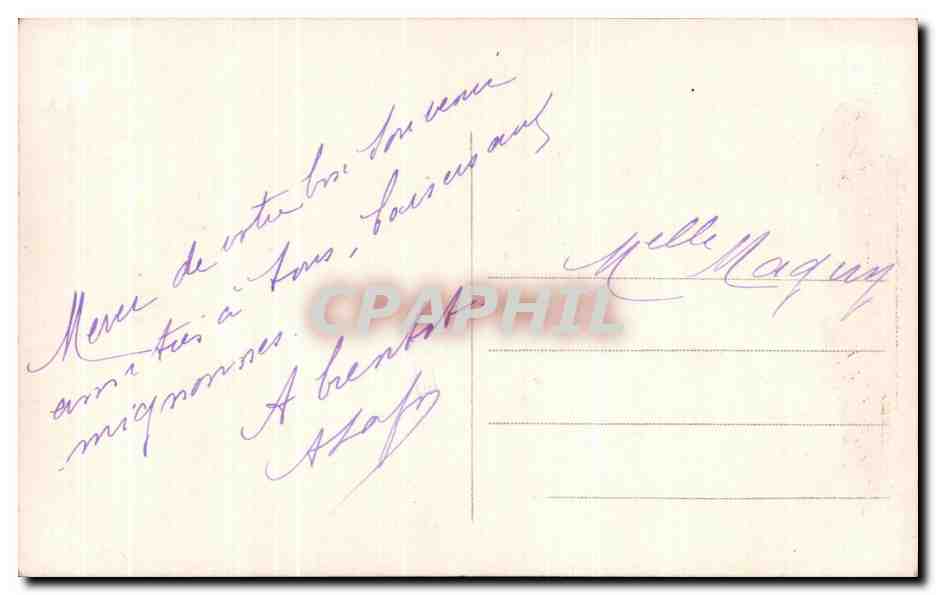 Merci de votre bon souvenir
amitiés à tous, baisers aux
mignonnes.
A bientôt
Melle Maguy
CPAPHIL